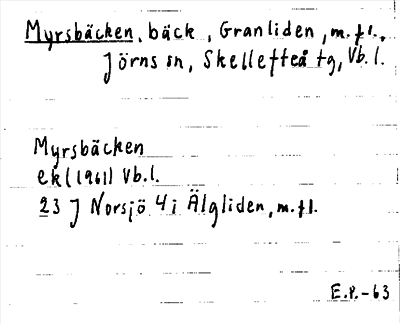 Myrsbäcken, bäck, Granliden, m.fl.,
Jörns sn, Skellefteå tg, Vb. l.
Myrsbäcken
ek (1961) Vb.l.
23 J Norsjö 4 i Älgliden, m.fl.
E.P.-63